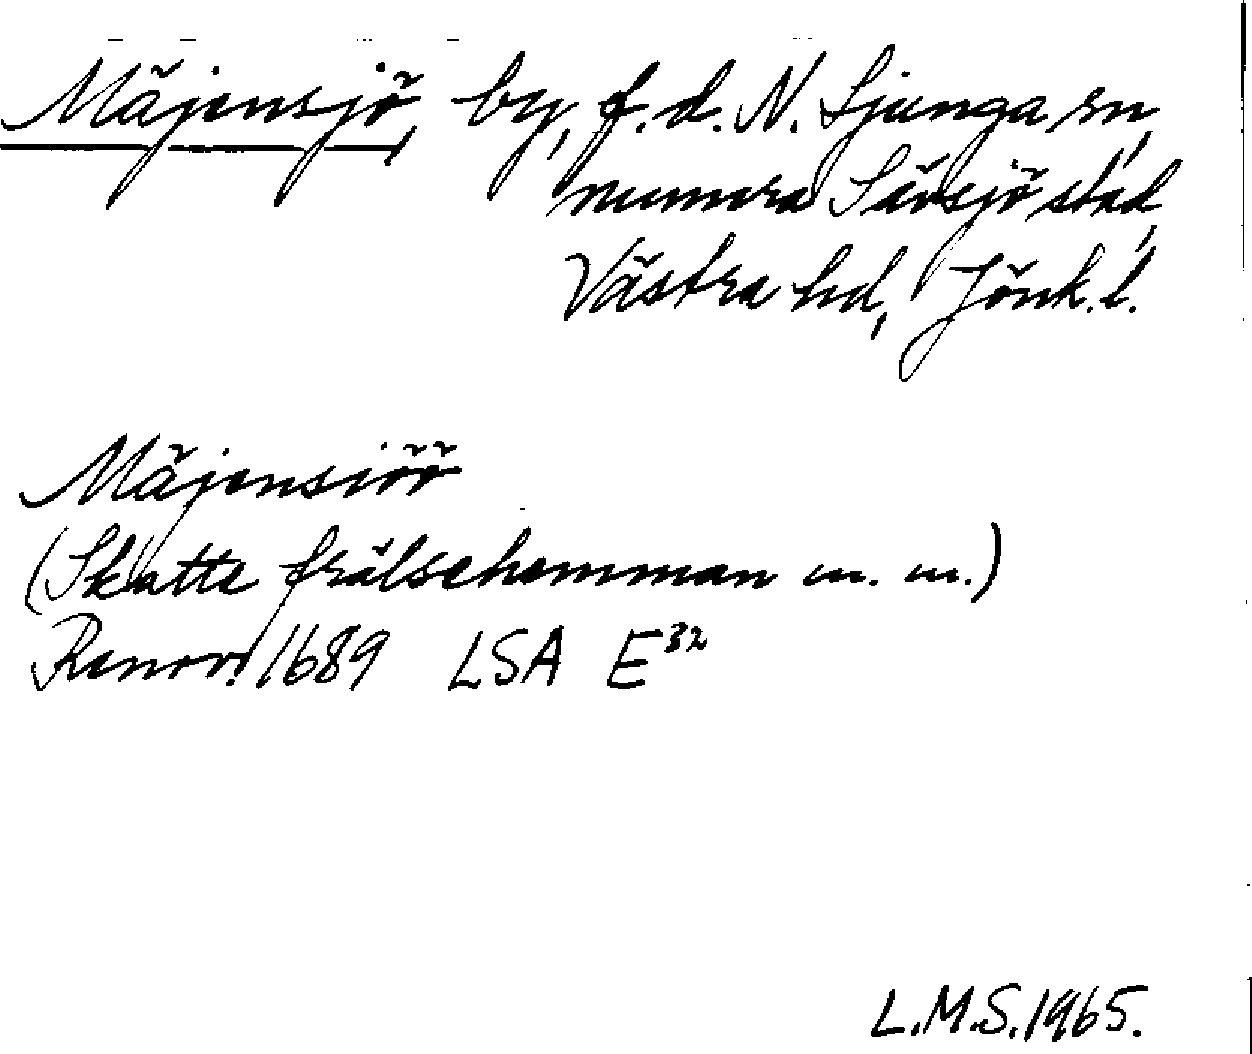 Mäjensjö, by, f.d. N. Ljunga sn,
numera Sävsjö stad,
Västra hd, Jönk. l.
Mäjensiöö
(Skatte frälsehemman m. m.)
Renov. 1689 LSA E³²
L.M.S. 1965.